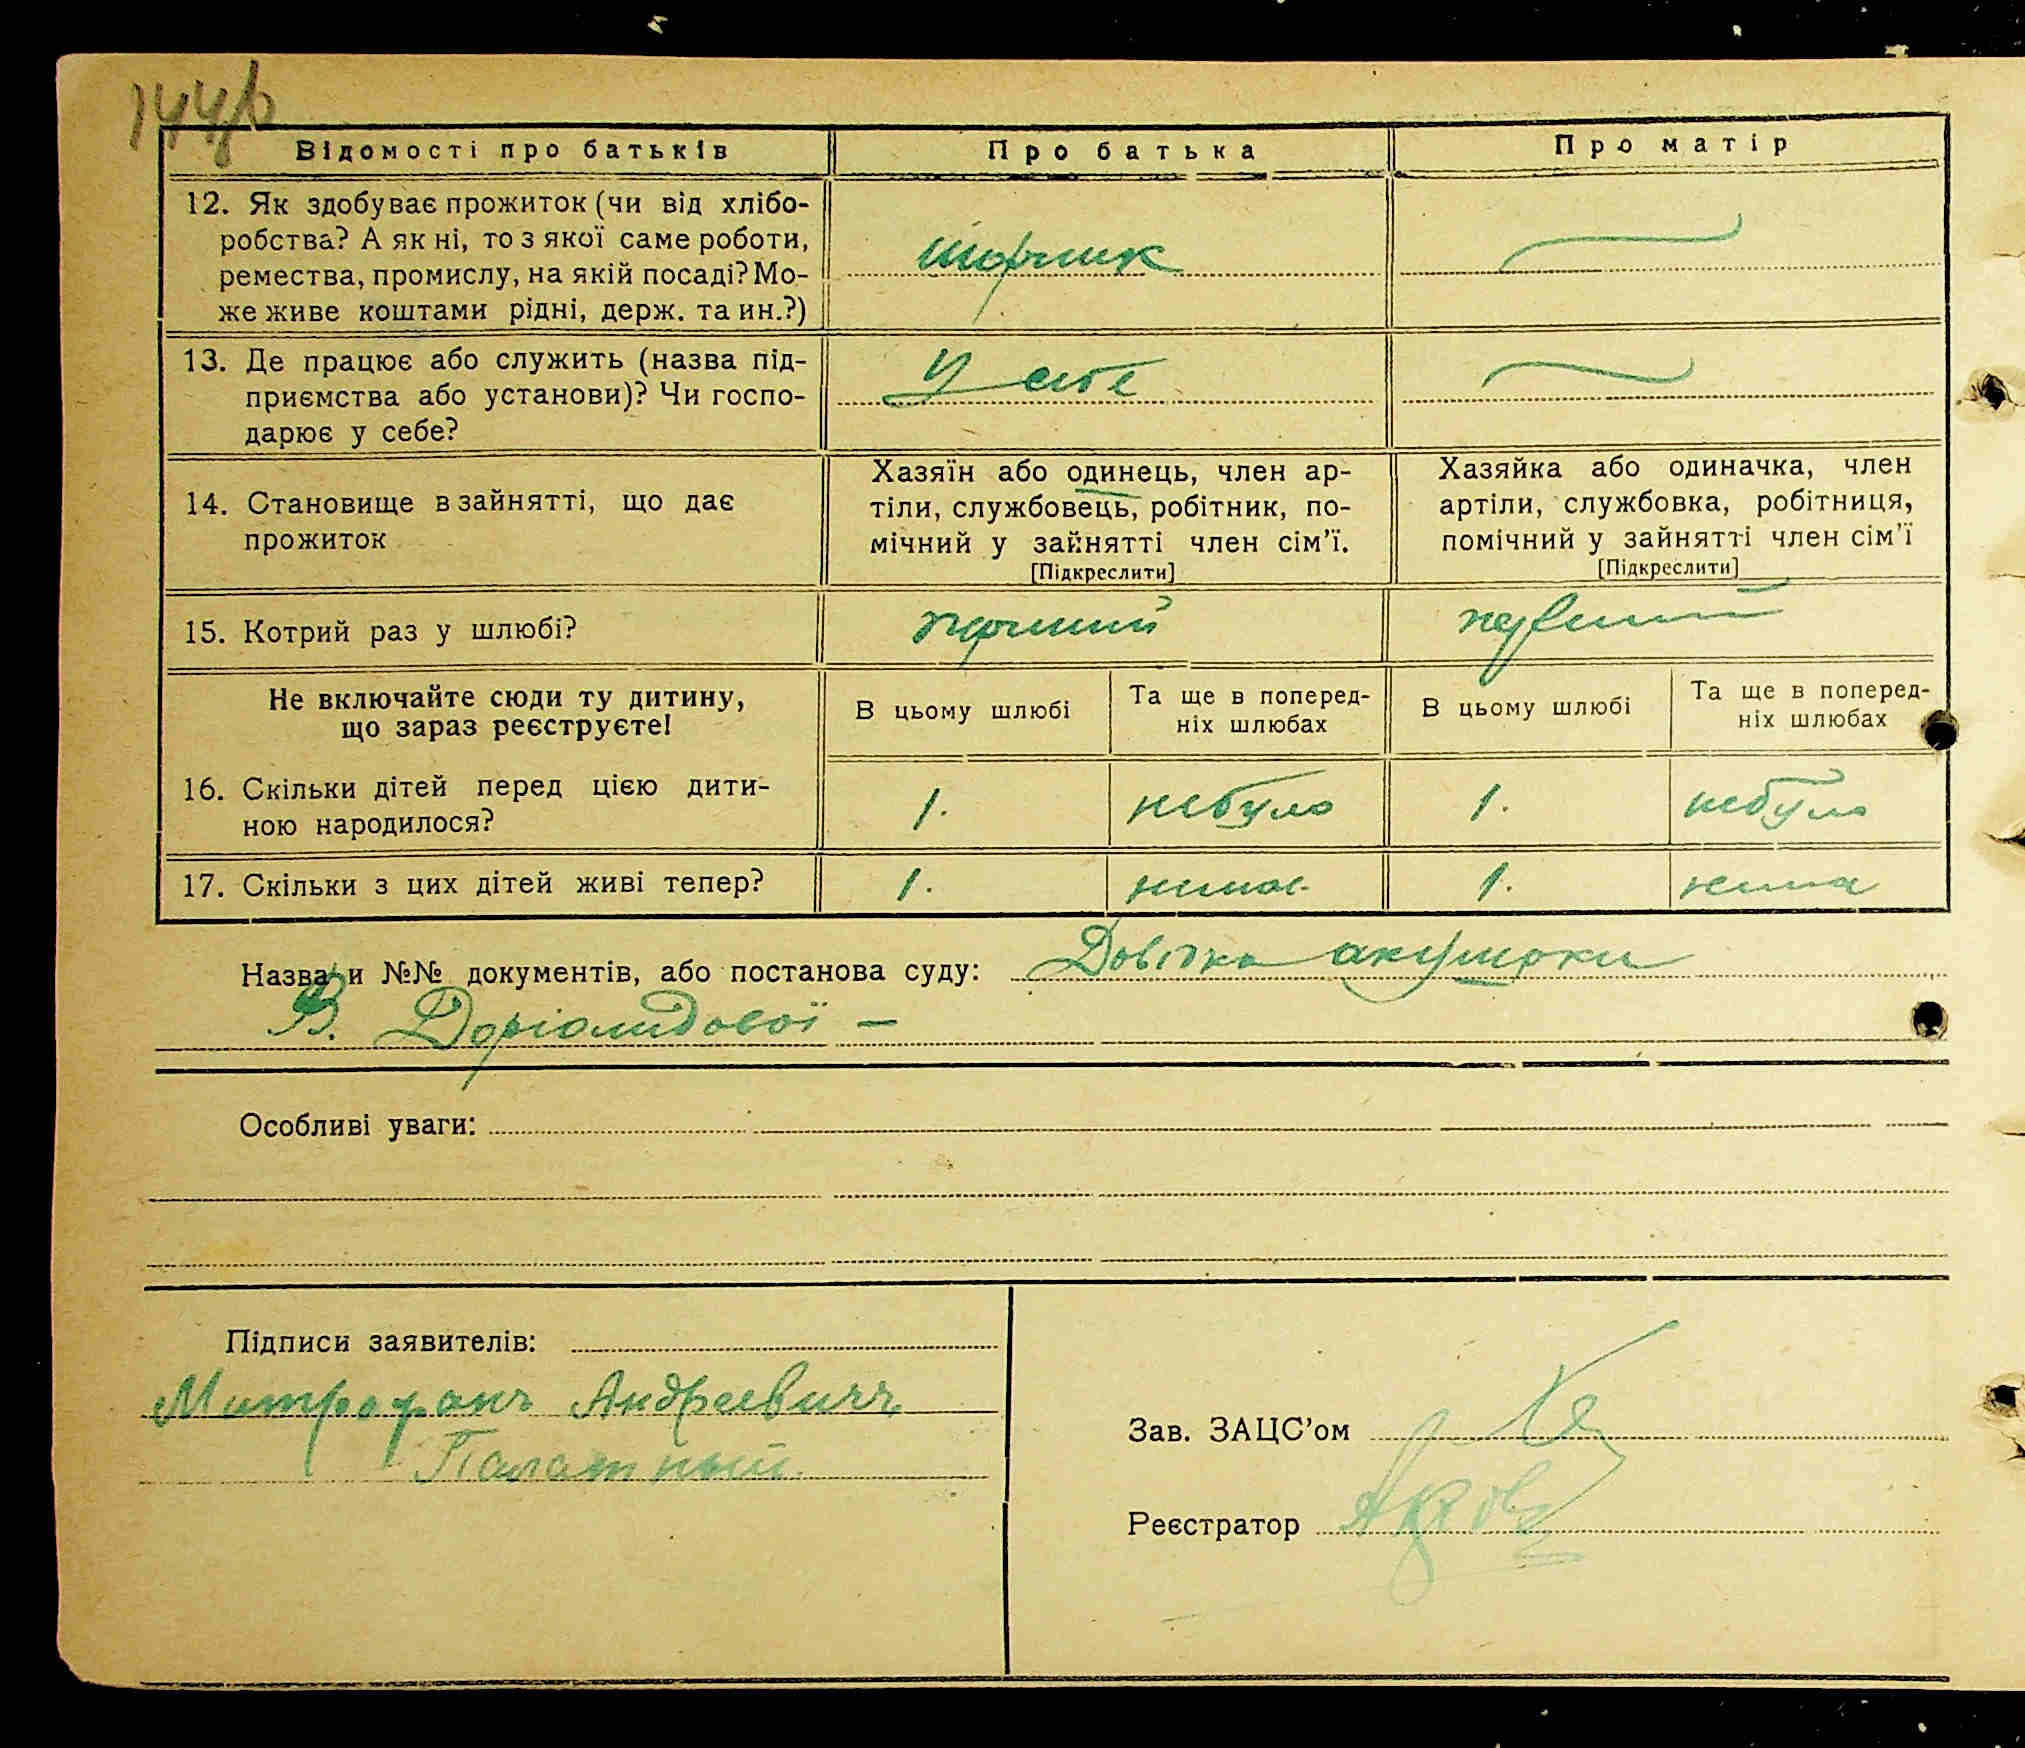 Відомості про батьків Про батька Про матір
12. Як здобуває прожиток (чи від хлібо-
робства? А як ні, то з якої саме роботи,
ремества, промислу, на якій посаді? Мо-
же живе коштами рідні, держ. та ин.?)
шорник
13. Де працює або служить (назва під-
приємства або установи)? Чи госпо-
дарює у себе?
У себе
14. Становище в зайнятті, що дає
прожиток
Хазяїн або одинець, член ар-
тіли, службовець, робітник, по-
мічний у зайнятті член сім'ї.
[Підкреслити]
Хазяйка або одиначка, член
артіли, службовка, робітниця,
помічний у зайнятті член сім'ї
[Підкреслити]
15. Котрий раз у шлюбі? перший первий
Не включайте сюди ту дитину,
що зараз реєструєте!
В цьому шлюбі
Та ще в поперед-
ніх шлюбах
В цьому шлюбі
Та ще в поперед-
ніх шлюбах
16. Скільки дітей перед цією дити-
ною народилося?
1. небуло 1. небуло
17. Скільки з цих дітей живі тепер? 1. немає 1. нема
Назва и №№ документів, або постанова суду: Довідка акушерки
В.
Особливі уваги:
Підписи заявителів:
Митрофанъ Андреевичъ
Палатный
Зав. ЗАЦС'ом
Реєстратор